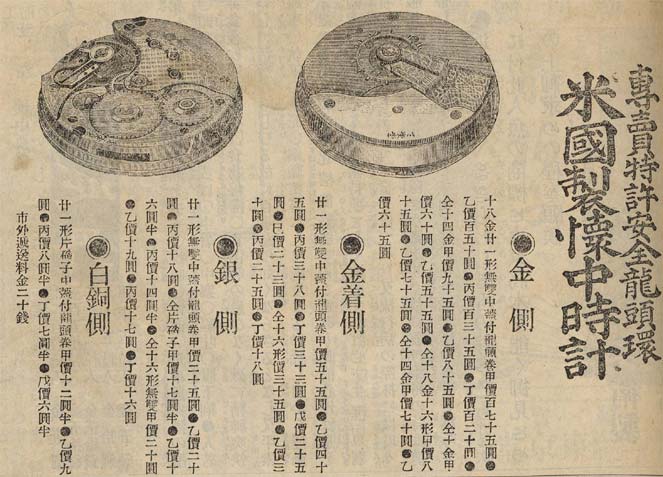 專賣特許安全龍頭環
米國製懷中時計
◉金側
十八金廿一形無雙中蓋付龍頭卷甲價百七十五圓●
乙價百五十圓●丙價百三十五圓●丁價百二十圓●
仝十四金甲價九十五圓●乙價八十五圓●仝十金甲
價六十圓●乙價五十五圓●仝十八金十六形甲價八
十五圓●乙價七十五圓●仝十四金甲價七十圓●乙
價六十五圓
◉金着側
廿一形無雙中蓋付龍頭卷甲價五十五圓●乙價四十
五圓●丙價三十八圓●丁價三十三圓●戊價二十五
圓●巳價二十三圓●仝十六形價三十五圓●乙價三
十圓●丙價二十五圓●丁價十八圓
◉銀側
廿一形無雙中蓋付龍頭卷甲價二十五圓●乙價二十
圓●丙價十八圓●仝片硝子甲價十七圓半●乙價十
六圓半●丙價十四圓半●仝十六形無雙甲價二十圓
●乙價十九圓●丙價十七圓●丁價十六圓
◉白銅側
廿一形片硝子中蓋付龍頭卷甲價十二圓半●乙價九
圓●丙價八圓半●丁價七圓半●戊價六圓半
市外遞送料金二十錢